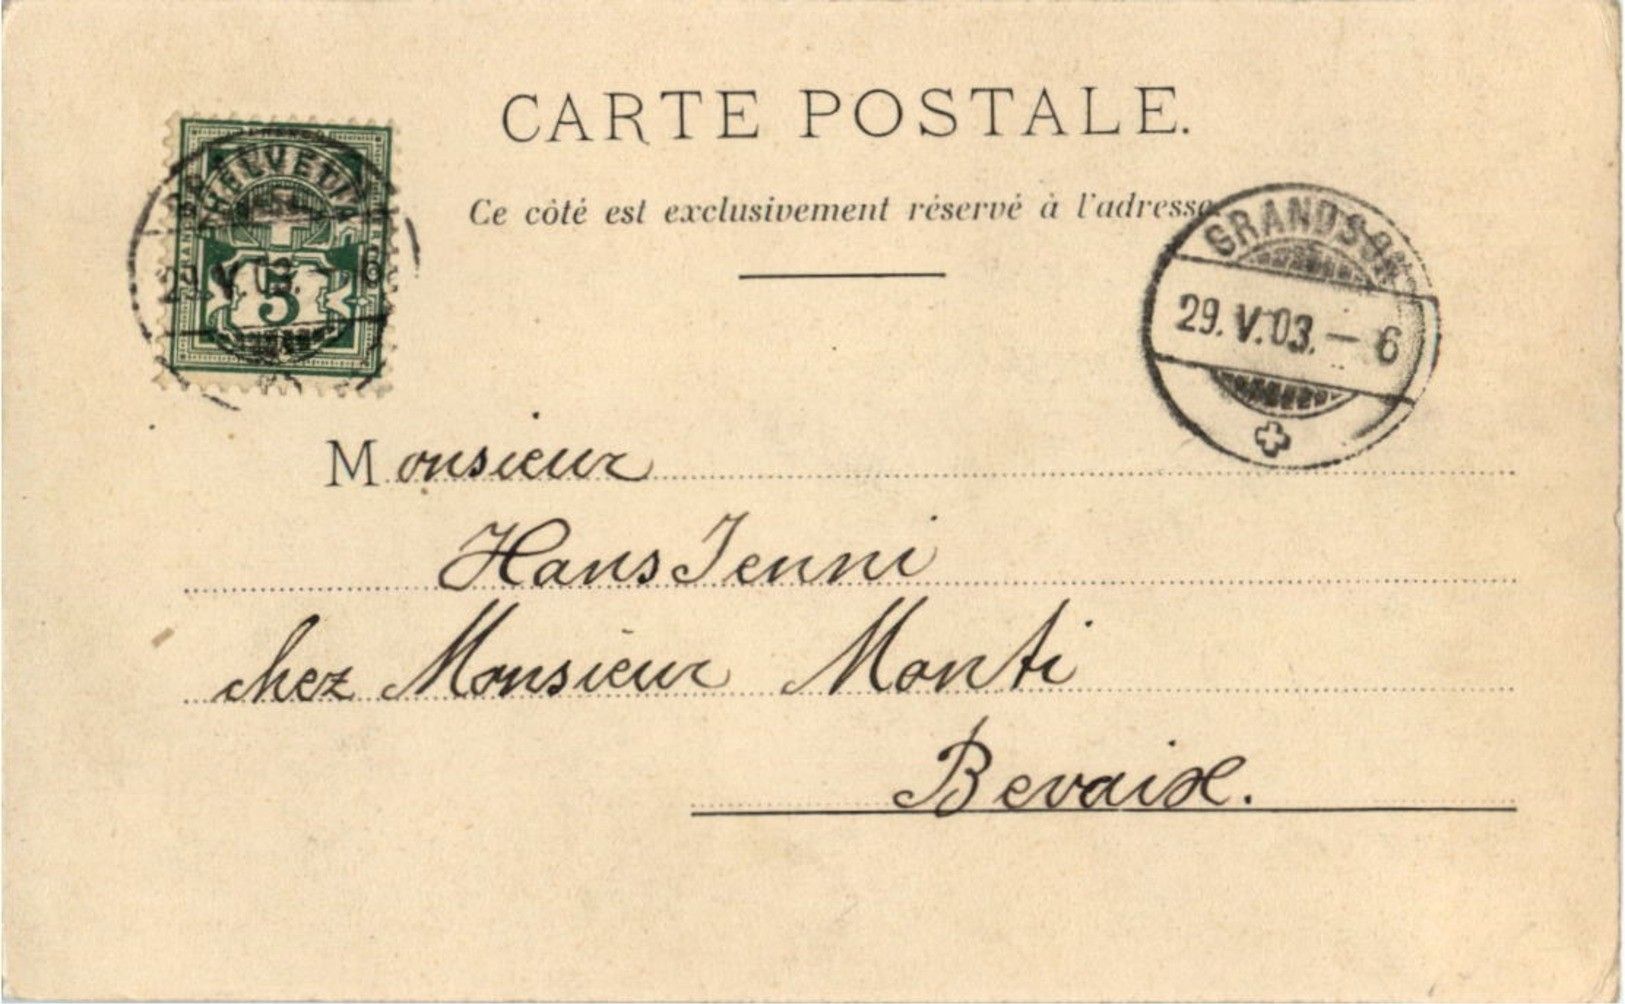 CARTE POSTALE.
Ce côté est exclusivement réservé à l'adresse.
HELVETIA
5
29.V.03.–6
GRANDSON
29.V.03.–6
Monsieur
Hans Jenni
chez Monsieur Monti
Bevaix.